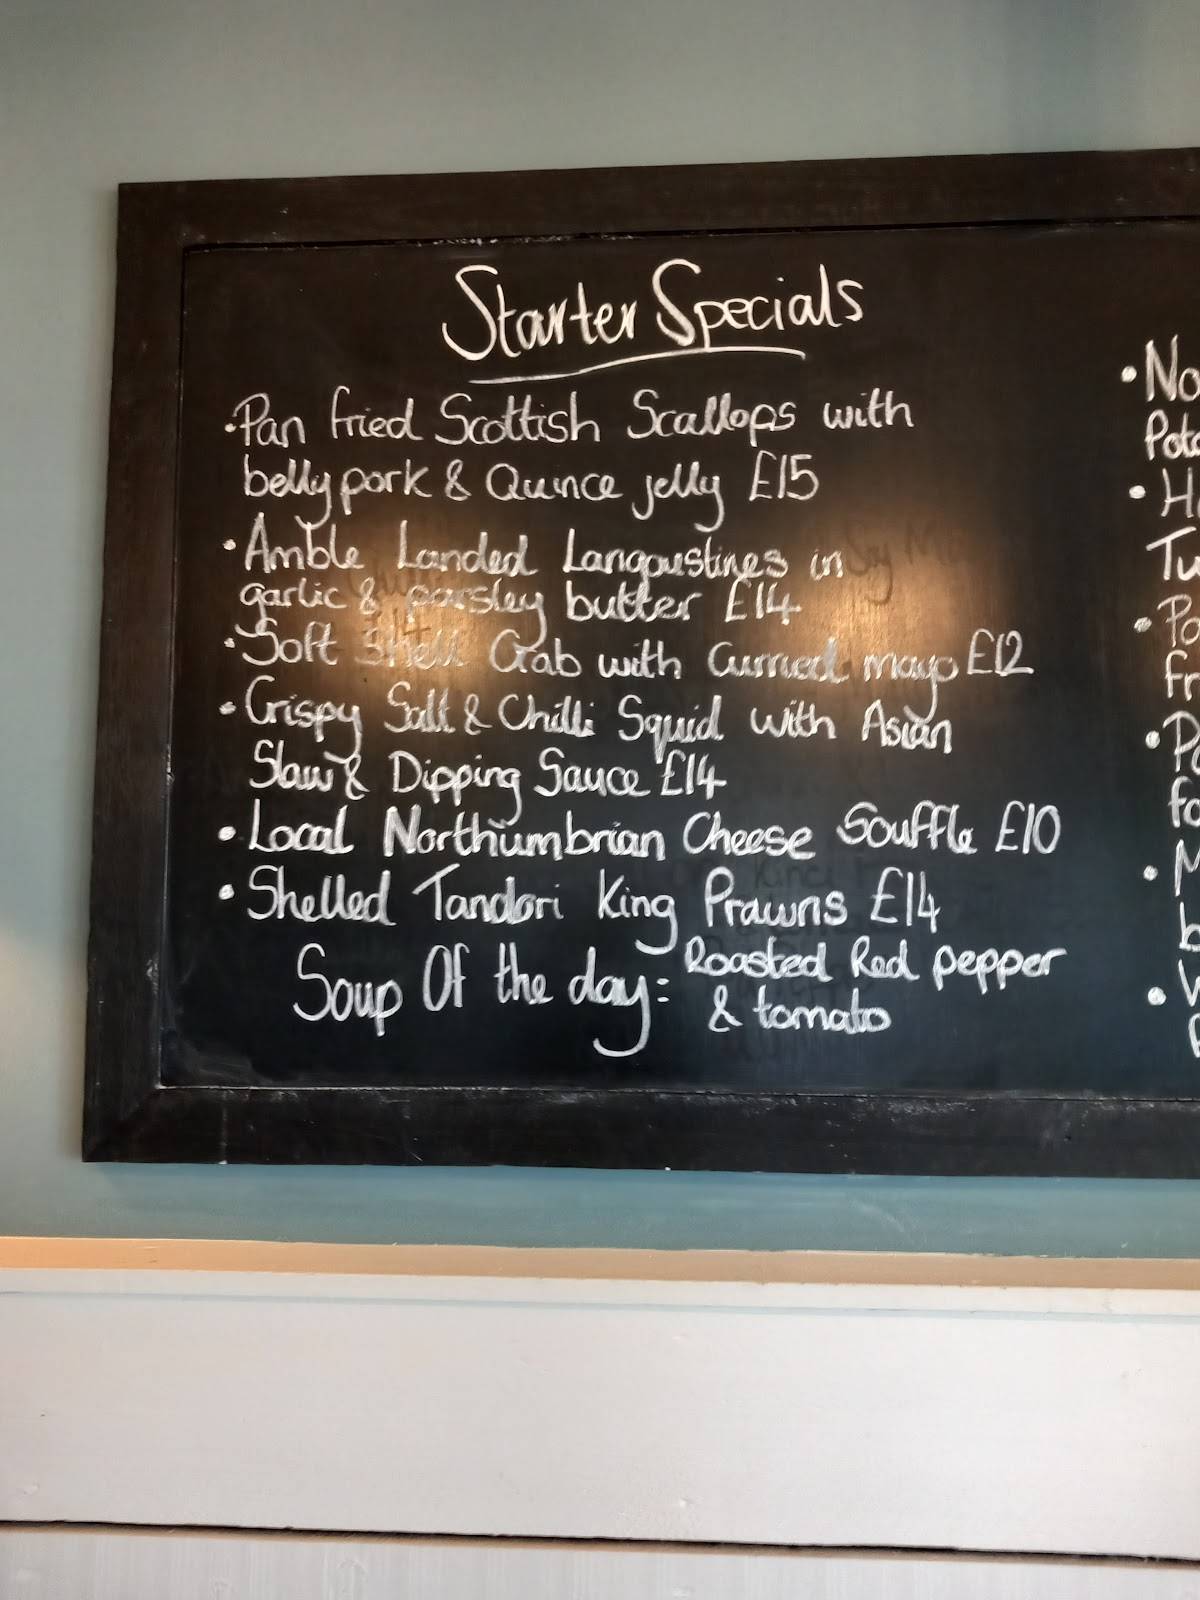 Starter Specials
• Pan fried Scottish Scallops with
belly pork & Quince jelly £15
• Amble Landed Langoustines in
garlic & parsley butter £14
• Soft Shell Crab with Curried mayo £12
• Crispy Salt & Chilli Squid with Asian
Slaw & Dipping Sauce £14
• Local Northumbrian Cheese Souffle £10
• Shelled Tandori King Prawns £14
Soup Of the day: Roasted Red pepper
& tomato